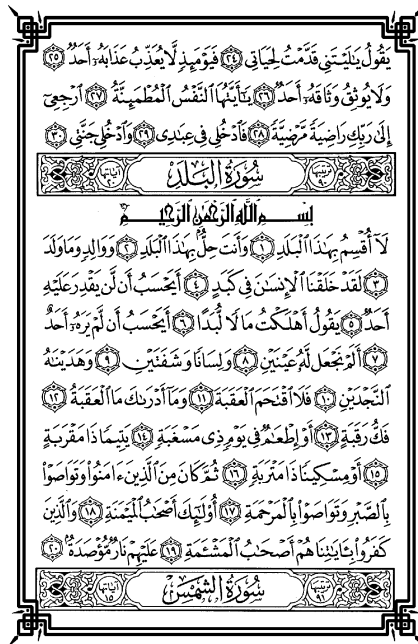 يَقُولُ يَٰلَيْتَنِي قَدَّمْتُ لِحَيَاتِي ٢٤ فَيَوْمَئِذٍ لَّا يُعَذِّبُ عَذَابَهُۥٓ أَحَدٌ ٢٥
وَلَا يُوثِقُ وَثَاقَهُۥٓ أَحَدٌ ٢٦ يَٰٓأَيَّتُهَا ٱلنَّفْسُ ٱلْمُطْمَئِنَّةُ ٢٧ ٱرْجِعِىٓ
إِلَىٰ رَبِّكِ رَاضِيَةً مَّرْضِيَّةً ٢٨ فَٱدْخُلِى فِى عِبَٰدِى ٢٩ وَٱدْخُلِى جَنَّتِى ٣٠
ترتيبها ٩٠ سُورَةُ الْبَلَدِ آياتها ٢٠
بِسْمِ ٱللَّهِ ٱلرَّحْمَٰنِ ٱلرَّحِيمِ
لَآ أُقْسِمُ بِهَٰذَا ٱلْبَلَدِ ١ وَأَنتَ حِلٌّۢ بِهَٰذَا ٱلْبَلَدِ ٢ وَوَالِدٍ وَمَا وَلَدَ
٣ لَقَدْ خَلَقْنَا ٱلْإِنسَٰنَ فِى كَبَدٍ ٤ أَيَحْسَبُ أَن لَّن يَقْدِرَ عَلَيْهِ
أَحَدٌ ٥ يَقُولُ أَهْلَكْتُ مَالًا لُّبَدًا ٦ أَيَحْسَبُ أَن لَّمْ يَرَهُۥٓ أَحَدٌ
٧ أَلَمْ نَجْعَل لَّهُۥ عَيْنَيْنِ ٨ وَلِسَانًا وَشَفَتَيْنِ ٩ وَهَدَيْنَٰهُ
ٱلنَّجْدَيْنِ ١٠ فَلَا ٱقْتَحَمَ ٱلْعَقَبَةَ ١١ وَمَآ أَدْرَىٰكَ مَا ٱلْعَقَبَةُ ١٢
فَكُّ رَقَبَةٍ ١٣ أَوْ إِطْعَٰمٌ فِى يَوْمٍ ذِى مَسْغَبَةٍ ١٤ يَتِيمًا ذَا مَقْرَبَةٍ
١٥ أَوْ مِسْكِينًا ذَا مَتْرَبَةٍ ١٦ ثُمَّ كَانَ مِنَ ٱلَّذِينَ ءَامَنُوا۟ وَتَوَاصَوْا۟
بِٱلصَّبْرِ وَتَوَاصَوْا۟ بِٱلْمَرْحَمَةِ ١٧ أُو۟لَٰٓئِكَ أَصْحَٰبُ ٱلْمَيْمَنَةِ ١٨ وَٱلَّذِينَ
كَفَرُوا۟ بِـَٔايَٰتِنَا هُمْ أَصْحَٰبُ ٱلْمَشْـَٔمَةِ ١٩ عَلَيْهِمْ نَارٌ مُّؤْصَدَةٌۢ ٢٠
ترتيبها ٩١ سُورَةُ الشَّمْسِ آياتها ١٥